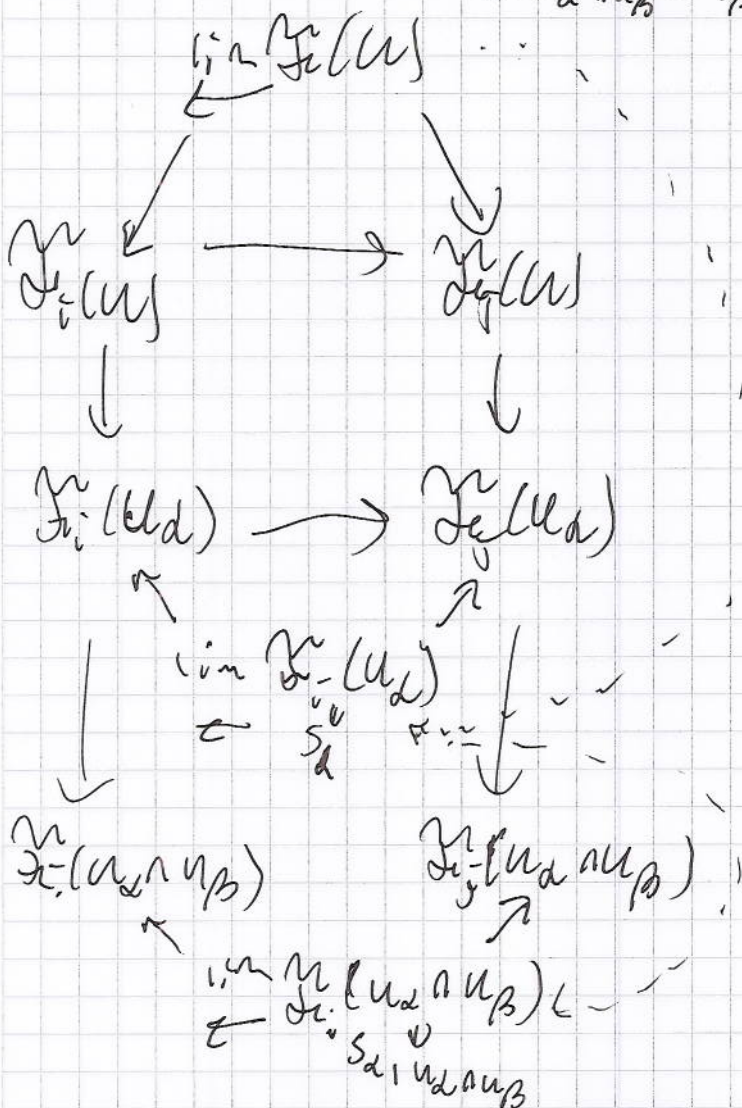 lim ℱ_i(U)
←
ℱ_i(U) → ℱ_j(U)
ℱ_i(U_α) → ℱ_j(U_α)
lim ℱ_i(U_α)
← s_α
ℱ_i(U_α ∩ U_β) ℱ_j(U_α ∩ U_β)
lim ℱ_i(U_α ∩ U_β)
← s_α|U_α∩U_β